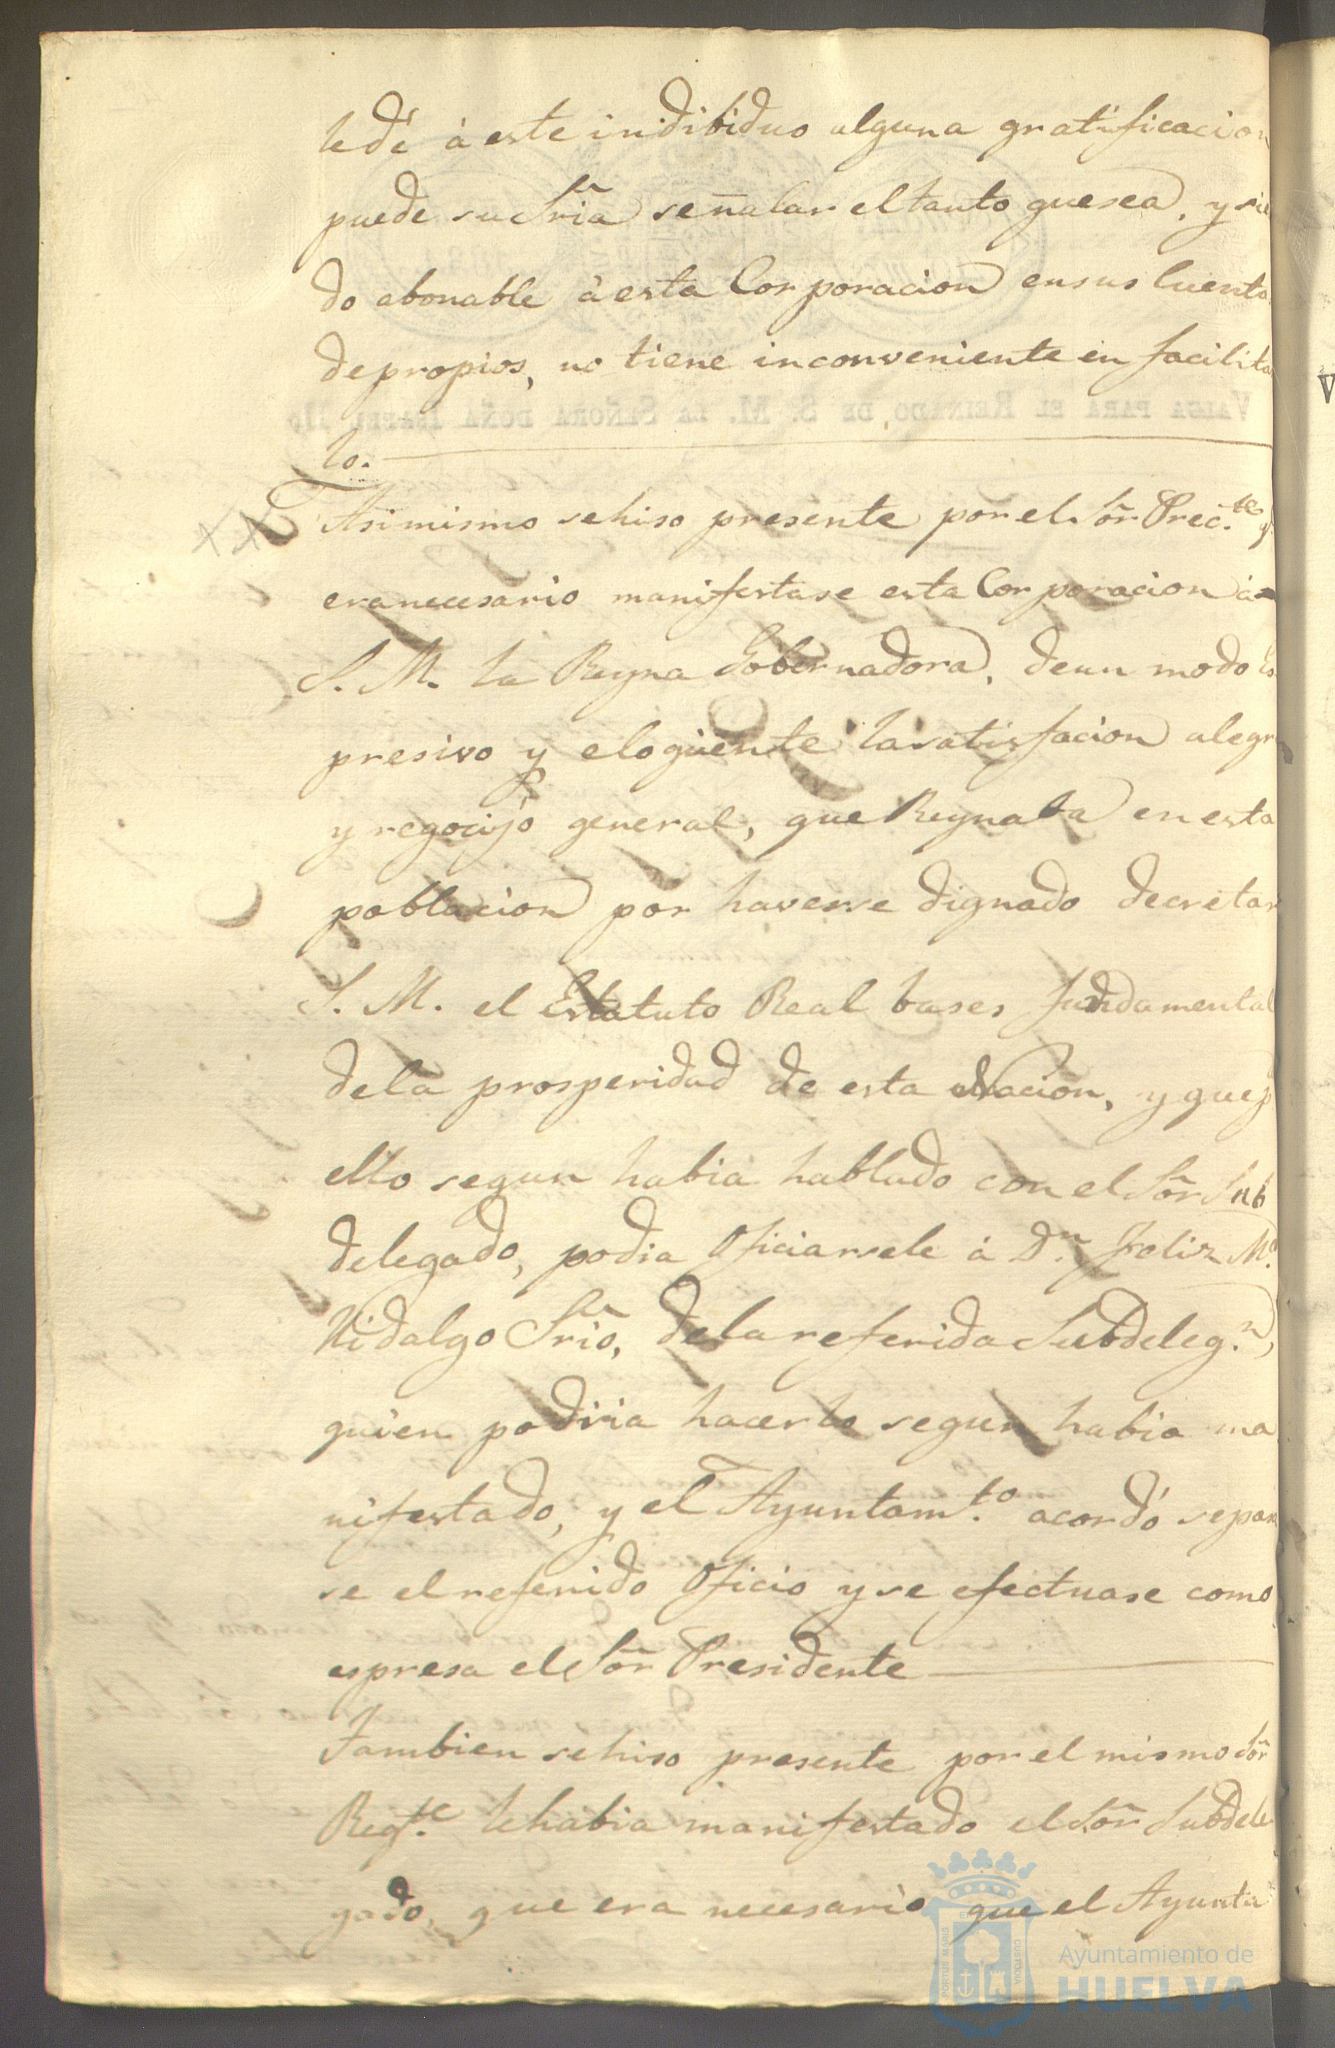 le dé à este indibiduo alguna gratificacion
puede su Sria señalar el tanto que sea, y sien
do abonable à esta Corporacion en sus Cuentas
de propios, no tiene inconveniente en facilitar
lo.
Asi mismo se hiso presente por el Sor̃ Prec.te q.e
era necesario manifestase esta Corporacion á
S. M. la Reyna Gobernadora, de un modo es
presivo y eloqüente la satisfacion alegria
y regocijo general, que Reynaba en esta
poblacion por haverse dignado decretar
S. M. el Estatuto Real bases fundamental
de la prosperidad de esta Nacion, y que p.r
ello segun habia hablado con el Sor̃ Sub
delegado, podia Oficiarsele á D.n Feliz M.a
Hidalgo Srio, de la referida Subdeleg.n,
quien podria hacerlo segun habia ma
nifestado, y el Ayuntam.to acordó se pasa
se el referido Oficio y se efectuase como
espresa el Sor̃ Presidente
Tambien se hiso presente por el mismo Sor̃
Reg.te le habia manifestado el Sor̃ Subdele
gado, que era necesario que el Ayunta
VALGA PARA EL REINADO DE S. M. LA SEÑORA DOÑA ISABEL II
Ayuntamiento de
HUELVA